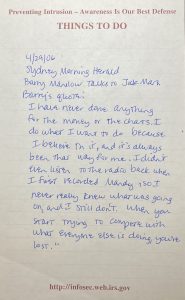 Preventing Intrusion – Awareness Is Our Best Defense
THINGS TO DO
4/29/06
Sydney Morning Herald
Barry Manilow Talks to Jade Mark
Barry's quote:
I have never done anything
for the money or the charts. I
do what I want to do because
I believe in it, and it's always
been that way for me. I didn't
even listen to the radio back when
I first recorded Mandy, so I
never really knew what was going
on, and I still don't. When you
start trying to compete with
what everyone else is doing, you're
lost."
http://infosec.web.irs.gov